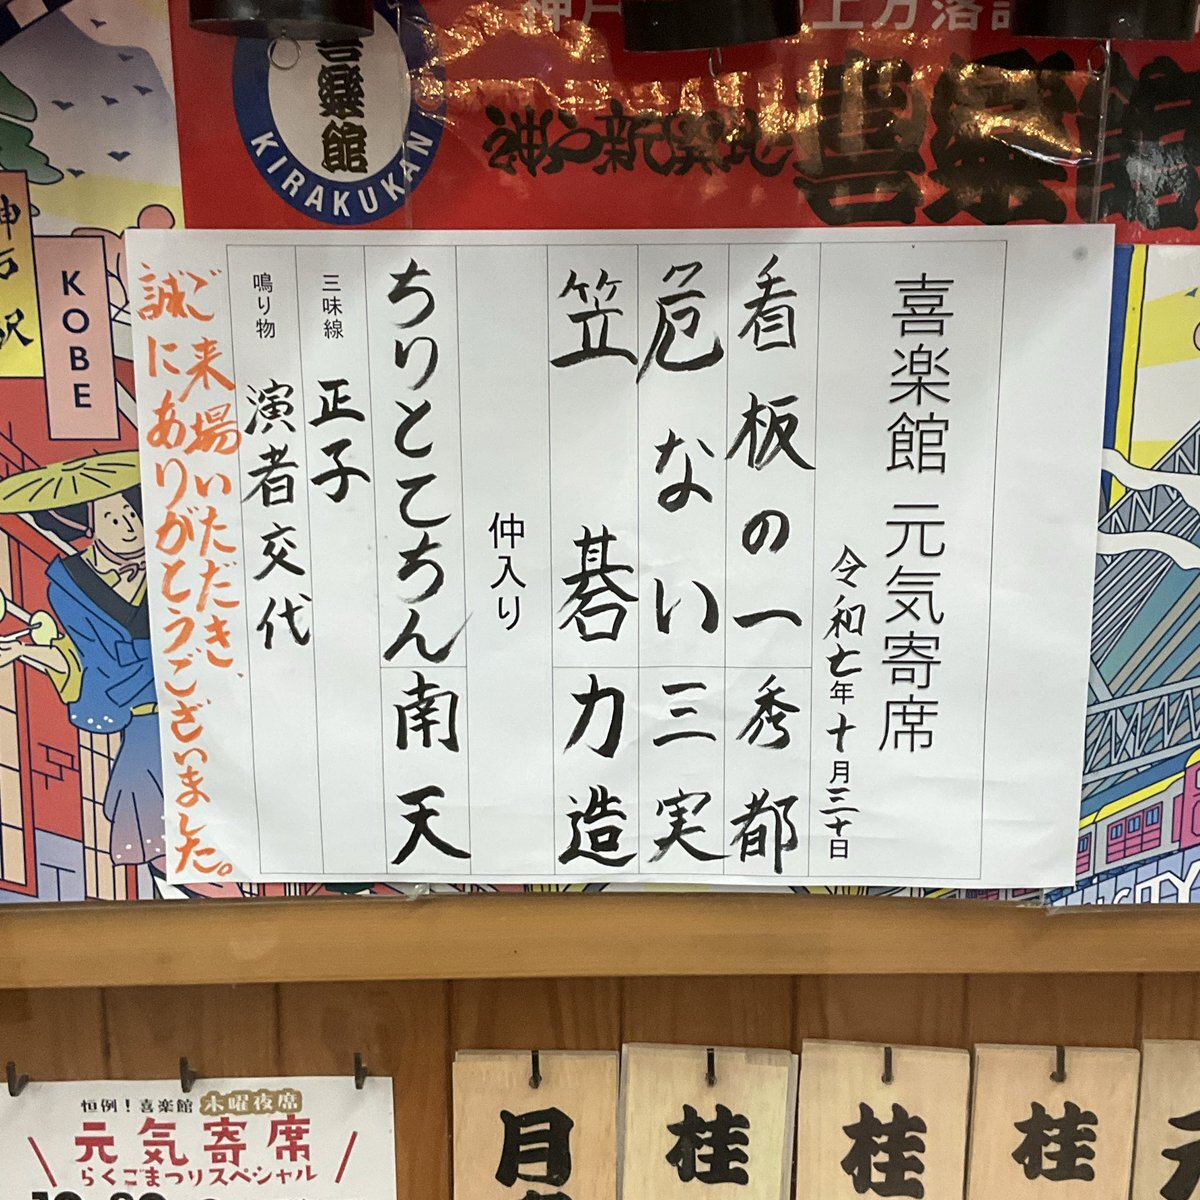 喜楽館
KIRAKUKAN
神戸新開地
喜楽館
神戸駅
KOBE
喜楽館 元気寄席
令和七年十月三十日
看板の一 秀都
危ない 三実
笠碁 力造
仲入り
ちりとてちん 南天
三味線 正子
鳴り物 演者交代
ご来場いただき、
誠にありがとうございました。
恒例!喜楽館 木曜夜席
元気寄席
らくごまつりスペシャル
月
桂
桂
桂